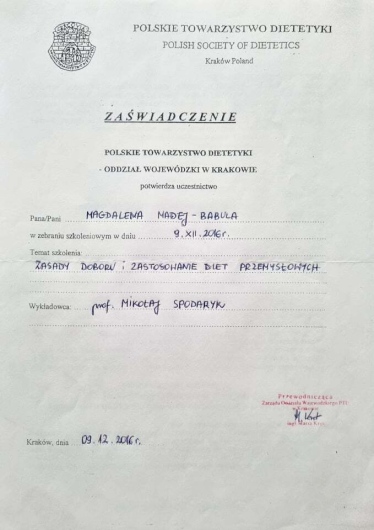 POLSKIE TOWARZYSTWO DIETETYKI
POLISH SOCIETY OF DIETETICS
Kraków Poland
ZAŚWIADCZENIE
POLSKIE TOWARZYSTWO DIETETYKI
- ODDZIAŁ WOJEWÓDZKI W KRAKOWIE
potwierdza uczestnictwo
Pana/Pani MAGDALENA NADEJ-BABULA
w zebraniu szkoleniowym w dniu 9.XII.2016r.
Temat szkolenia:
ZASADY DOBORU i ZASTOSOWANIE DIET PRZEMYSŁOWYCH
Wykładowca: prof. MIKOŁAJ SPODARYK
Przewodnicząca
Kraków, dnia 09.12.2016r.